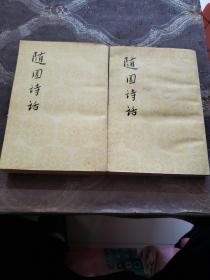 随园诗话
随园诗话